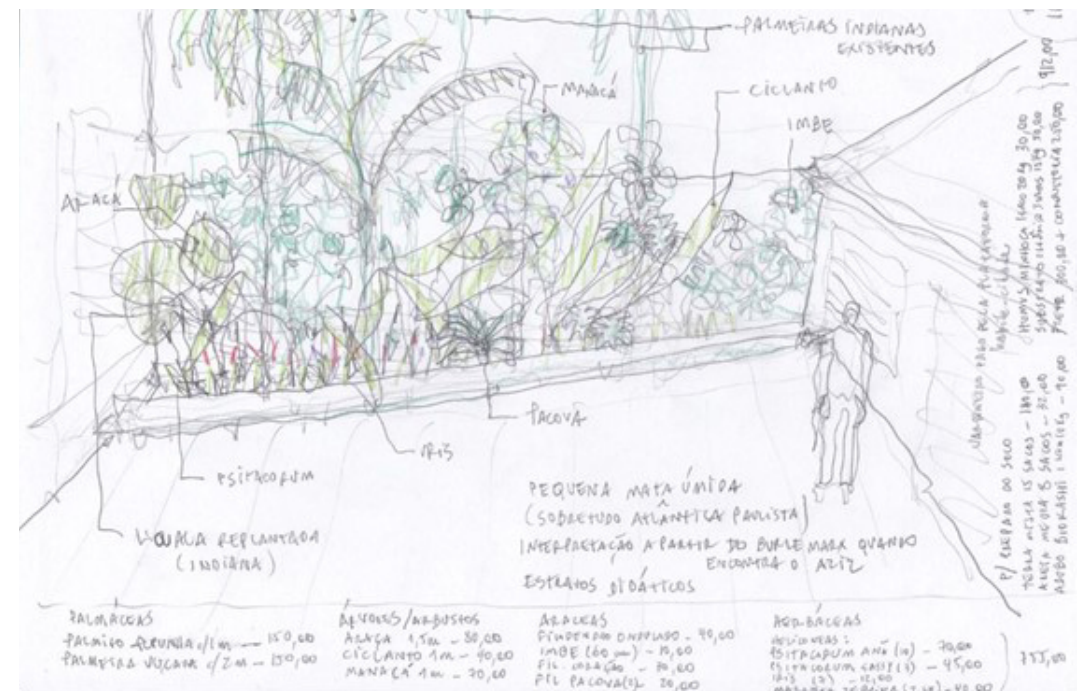 PALMEIRAS INDIANAS
EXISTENTES
MANACÁ
CICLANTO
IMBE
ARAÇÁ
PACOVÁ
IRIS
PSITACORUM
REPLANTADA
(INDIANA)
PEQUENA MATA ÚMIDA
(SOBRETUDO ATLÂNTICA PAULISTA)
INTERPRETAÇÃO A PARTIR DO BURLE MARX QUANDO
ENCONTRA O AZIZ
ESTRATOS DIDÁTICOS
PALMÁCEAS
PALMITO c/1m — 150,00
PALMEIRA c/2m — 150,00
ÁRVORES/ARBUSTOS
ARAÇA 1,5m — 80,00
CICLANTO 1m — 40,00
MANACÁ 1m — 70,00
ARACEAS
ONDULADO — 40,00
IMBE (60 cm) — 10,00
FIL. CORAÇÃO — 80,00
FIL PACOVA(2) 20,00
HERBÁCEAS
HELICONEAS:
PSITACORUM ANÃ (10) — 70,00
PSITACORUM (3) — 45,00
IRIS (2) — 12,00
755,00
P/ PREPARO DO SOLO
TERRA 15 SACOS — 180,00
AREIA MÉDIA 8 SACOS — 32,00
ADUBO BIOKASHI — 90,00
HUMUS MINHOCA 20kg 30,00
SUBSTRATO
FRETE
912,00
PELA PLATAFORMA